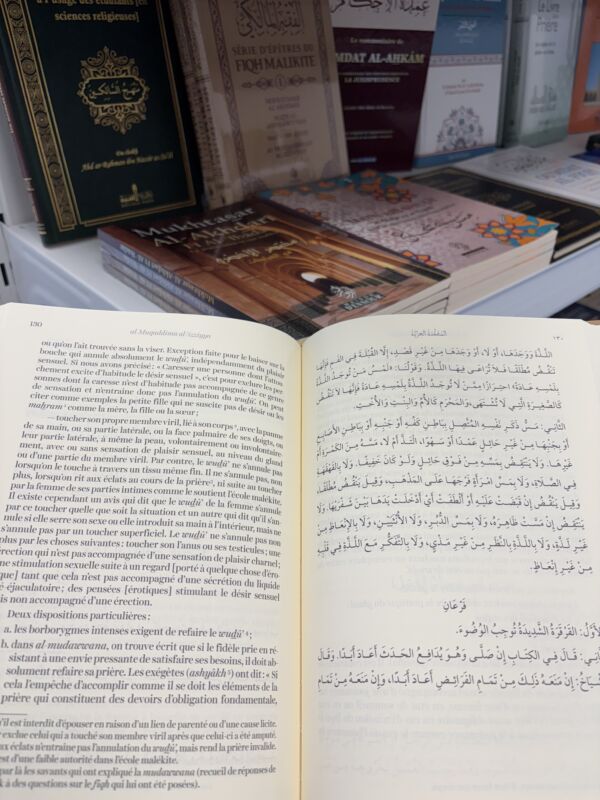 à l'usage des étudiants [en
sciences religieuses]
منهج السالكين
Abd ar-Rahman Ibn Nassir as-Sa'dî
الفقه المالكي
SÉRIE D'ÉPITRES DU
FIQH MALIKITE
1
عمدة الأحكام
Le commentaire de
'UMDAT AL-AHKÂM
LA JURISPRUDENCE
Le Livre
de la
Prière
Mukhtasar
AL Akhdari
130
al-Muqaddima al-'izziyya
ou qu'on l'ait trouvée sans la viser. Exception faite pour le baiser sur la
bouche qui annule absolument le wuḍū', indépendamment du plaisir
sensuel. Si nous avons précisé : « Caresser une personne dont l'attou-
chement excite d'habitude le désir sensuel », c'est pour exclure les per-
sonnes dont la caresse n'est d'habitude pas accompagnée de ce genre
de sensation et n'entraîne donc pas l'annulation du wuḍū'. On peut
citer comme exemples la petite fille qui ne suscite pas de désir ou les
maḥram comme la mère, la fille ou la sœur ;
— toucher son propre membre viril, lié à son corps, avec la paume
de sa main, ou sa partie latérale, ou la face palmaire de ses doigts, ou
leur partie latérale, à même la peau, volontairement ou involontaire-
ment, avec ou sans sensation de plaisir sensuel, au niveau du gland
ou d'une partie du membre viril. Par contre, le wuḍū' ne s'annule pas
lorsqu'on le touche à travers un tissu même fin. Il ne s'annule pas, non
plus, lorsqu'on rit aux éclats au cours de la prière, ni suite au toucher
par la femme de ses parties intimes comme le soutient l'école malékite.
Il existe cependant un avis qui dit que le wuḍū' de la femme s'annule
par ce toucher quelle que soit la situation et un autre qui dit qu'il s'an-
nule si elle serre son sexe ou elle introduit sa main à l'intérieur, mais ne
s'annule pas par un toucher superficiel. Le wuḍū' ne s'annule pas non
plus par les choses suivantes : toucher son l'anus ou ses testicules ; une
érection qui n'est pas accompagnée d'une sensation de plaisir charnel ;
une stimulation sexuelle suite à un regard [porté à quelque chose d'éro-
tique] tant que cela n'est pas accompagné d'une sécrétion du liquide
pré-éjaculatoire ; des pensées [érotiques] stimulant le désir sensuel
mais non accompagné d'une érection.
Deux dispositions particulières :
a. les borborygmes intenses exigent de refaire le wuḍū' ;
b. dans al-mudawwana, on trouve écrit que si le fidèle prie en ré-
sistant à une envie pressante de satisfaire ses besoins, il doit ab-
solument refaire sa prière. Les exégètes (ashyākh) ont dit : « Si
cela l'empêche d'accomplir comme il se doit les éléments de la
prière qui constituent des devoirs d'obligation fondamentale,
qu'il est interdit d'épouser en raison d'un lien de parenté ou d'une cause licite.
exclue celui qui a touché son membre viril après que celui-ci a été amputé.
aux éclats n'entraîne pas l'annulation du wuḍū', mais rend la prière invalide.
est d'une faible autorité dans l'école malékite.
par là les savants qui ont expliqué la mudawwana (recueil de réponses de
à des questions sur le fiqh qui lui ont été posées).
المُقَدِّمَةُ العِزِّيَّةُ
١٣٠
اللَّذَّةَ وَوَجَدَهَا، أَوْ لَا، أَوْ وَجَدَهَا مِنْ غَيْرِ قَصْدٍ، إِلَّا القُبْلَةَ فِي الفَمِ فَإِنَّهَا
تَنْقُضُ مُطْلَقًا فَلَا تُرَاعَى فِيهَا اللَّذَّةُ. وَقَوْلُنَا: «لَمْسُ مَنْ تُوجَدُ اللَّذَّةُ
بِلَمْسِهِ عَادَةً» احْتِرَازًا مِمَّنْ لَا تُوجَدُ اللَّذَّةُ بِلَمْسِهِ عَادَةً فَإِنَّهَا لَا تَنْقُضُ
كَالصَّغِيرَةِ الَّتِي لَا تُشْتَهَى، وَالمَحْرَمِ كَالأُمِّ وَالبِنْتِ وَالأُخْتِ.
الثَّانِي: مَسُّ ذَكَرِ نَفْسِهِ المُتَّصِلِ بِبَاطِنِ كَفِّهِ أَوْ جَنْبِهِ أَوْ بِبَاطِنِ الأَصَابِعِ
أَوْ بِجَنْبِهَا مِنْ غَيْرِ حَائِلٍ عَمْدًا أَوْ سَهْوًا، الْتَذَّ أَمْ لَا، مَسَّهُ مِنَ الكَمَرَةِ أَوْ
غَيْرِهَا. وَلَا يَنْتَقِضُ بِمَسِّهِ مِنْ فَوْقِ حَائِلٍ وَلَوْ كَانَ خَفِيفًا. وَلَا بِالقَهْقَهَةِ
فِي الصَّلَاةِ، وَلَا بِمَسِّ امْرَأَةٍ فَرْجَهَا عَلَى المَذْهَبِ، وَقِيلَ يَنْقُضُ مُطْلَقًا
وَقِيلَ يَنْقُضُ إِنْ قَبَضَتْ عَلَيْهِ أَوْ أَلْطَفَتْ أَيْ أَدْخَلَتْ يَدَهَا بَيْنَ شَفْرَيْهَا وَلَا
يَنْتَقِضُ إِنْ مَسَّتْ ظَاهِرَهُ، وَلَا بِمَسِّ الدُّبُرِ، وَلَا الأُنْثَيَيْنِ، وَلَا بِالإِنْعَاظِ مِنْ
غَيْرِ لَذَّةٍ، وَلَا بِاللَّذَّةِ بِالنَّظَرِ مِنْ غَيْرِ مَذْيٍ، وَلَا بِالتَّفَكُّرِ مَعَ اللَّذَّةِ فِي قَلْبِهِ
مِنْ غَيْرِ إِنْعَاظٍ.
فَرْعَانِ
الأَوَّلُ: القَرْقَرَةُ الشَّدِيدَةُ تُوجِبُ الوُضُوءَ.
الثَّانِي: قَالَ فِي الكِتَابِ إِنْ صَلَّى وَهُوَ يُدَافِعُ الحَدَثَ أَعَادَ أَبَدًا. وَقَالَ
الأَشْيَاخُ: إِنْ مَنَعَهُ ذَلِكَ مِنْ تَمَامِ الفَرَائِضِ أَعَادَ أَبَدًا، وَإِنْ مَنَعَهُ مِنْ تَمَامِ